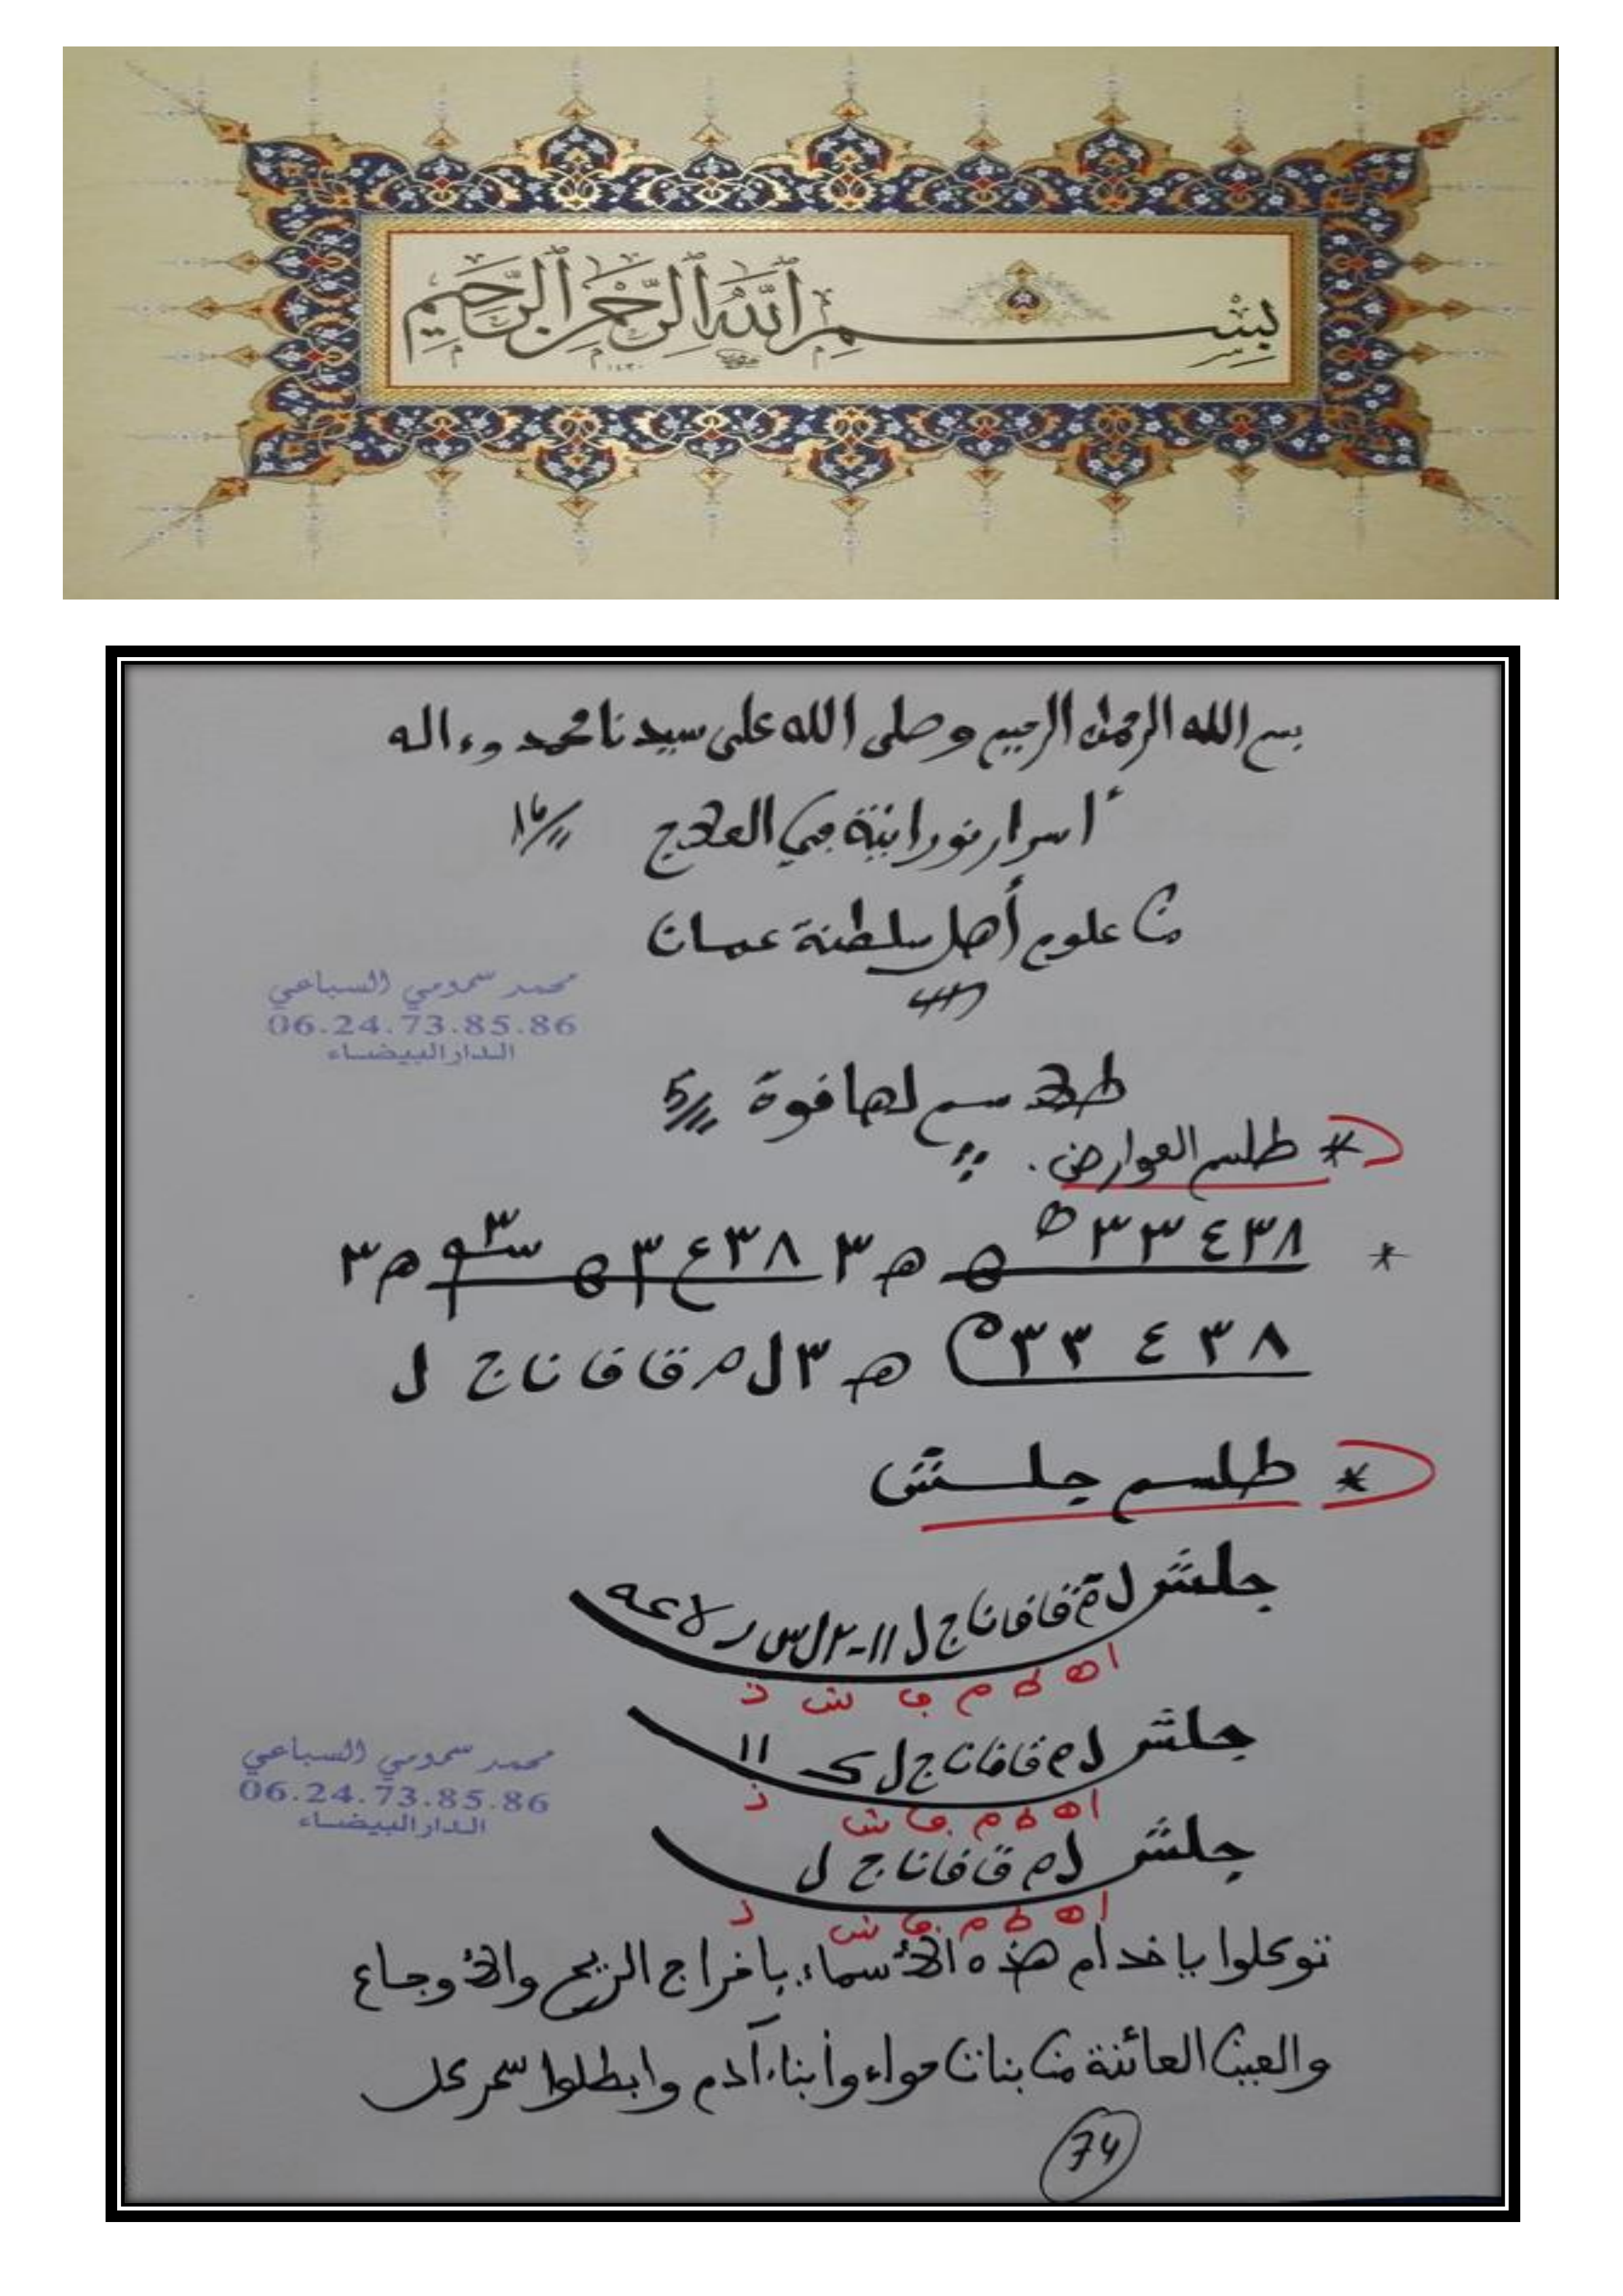 بِسْمِ ٱللَّهِ ٱلرَّحْمَٰنِ ٱلرَّحِيمِ
بسم الله الرحمن الرحيم وصلى الله على سيدنا محمد وءاله
أسرار نورانية في العلاج
من علوم أهل سلطنة عمان
محمد سمومي السباعي
06.24.73.85.86
الدار البيضاء
طلاسم لها قوة 5
* طلسم العوارض.
* ٣٣٤٣٨ ه ه م ٣ ٣٨ع٣ ه م٣
٣٣ ٤ ٣٨ ه ٣ ل م ق ا ف ا ن ا ج ل
* طلسم جلش
جلش ل م ق ا ف ا ن ا ج ل
ا ه ط م ف ش ذ
جلش ل م ق ا ف ا ن ا ج ل ك ١١
ا ه ط م ف ش ذ
جلش ل م ق ا ف ا ن ا ج ل
ا ه ط م ف ش ذ
محمد سمومي السباعي
06.24.73.85.86
الدار البيضاء
توكلوا ياخدام هذه الأسماء باخراج الريح والأوجاع
والعين العائنة من بنات حواء وأبناء آدم وابطلوا سحر كل
74